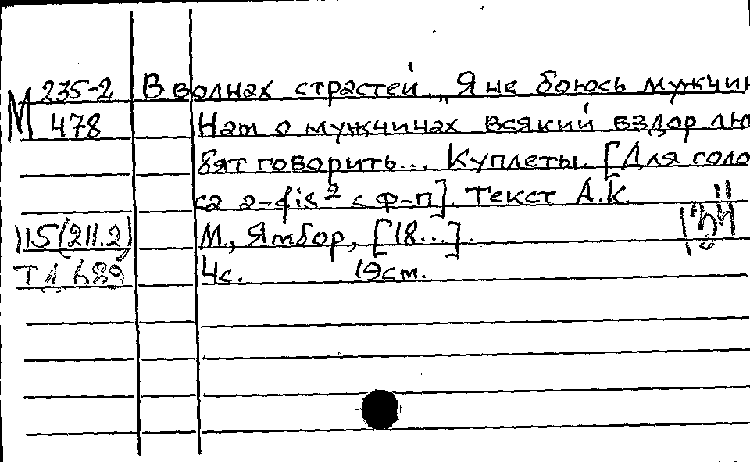 М 235-2 В волнах страстей. „Я не боюсь мужчин
478 Нам о мужчинах всякий вздор лю
бят говорить... Куплеты. [Для голо
са a-fis² с ф-п]. Текст А.К
115(211.2) М., Ямбор, [18...].
4с. 19см.